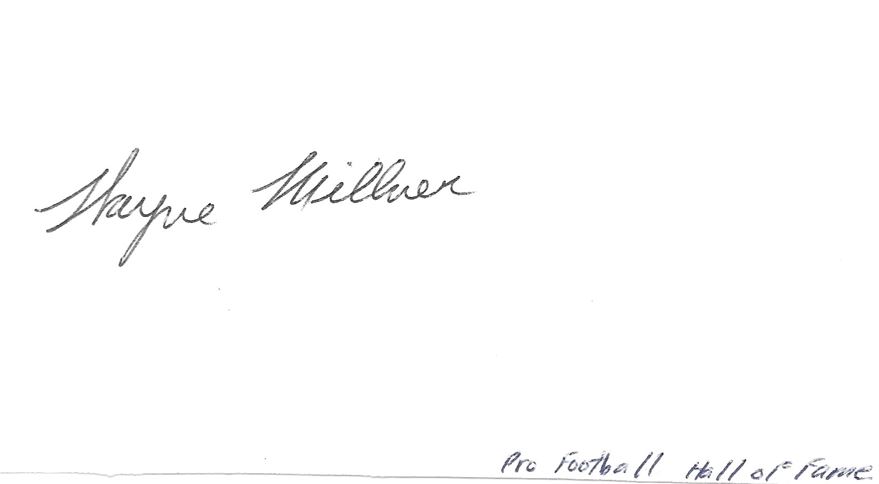 Wayne Millner
Pro Football Hall of Fame